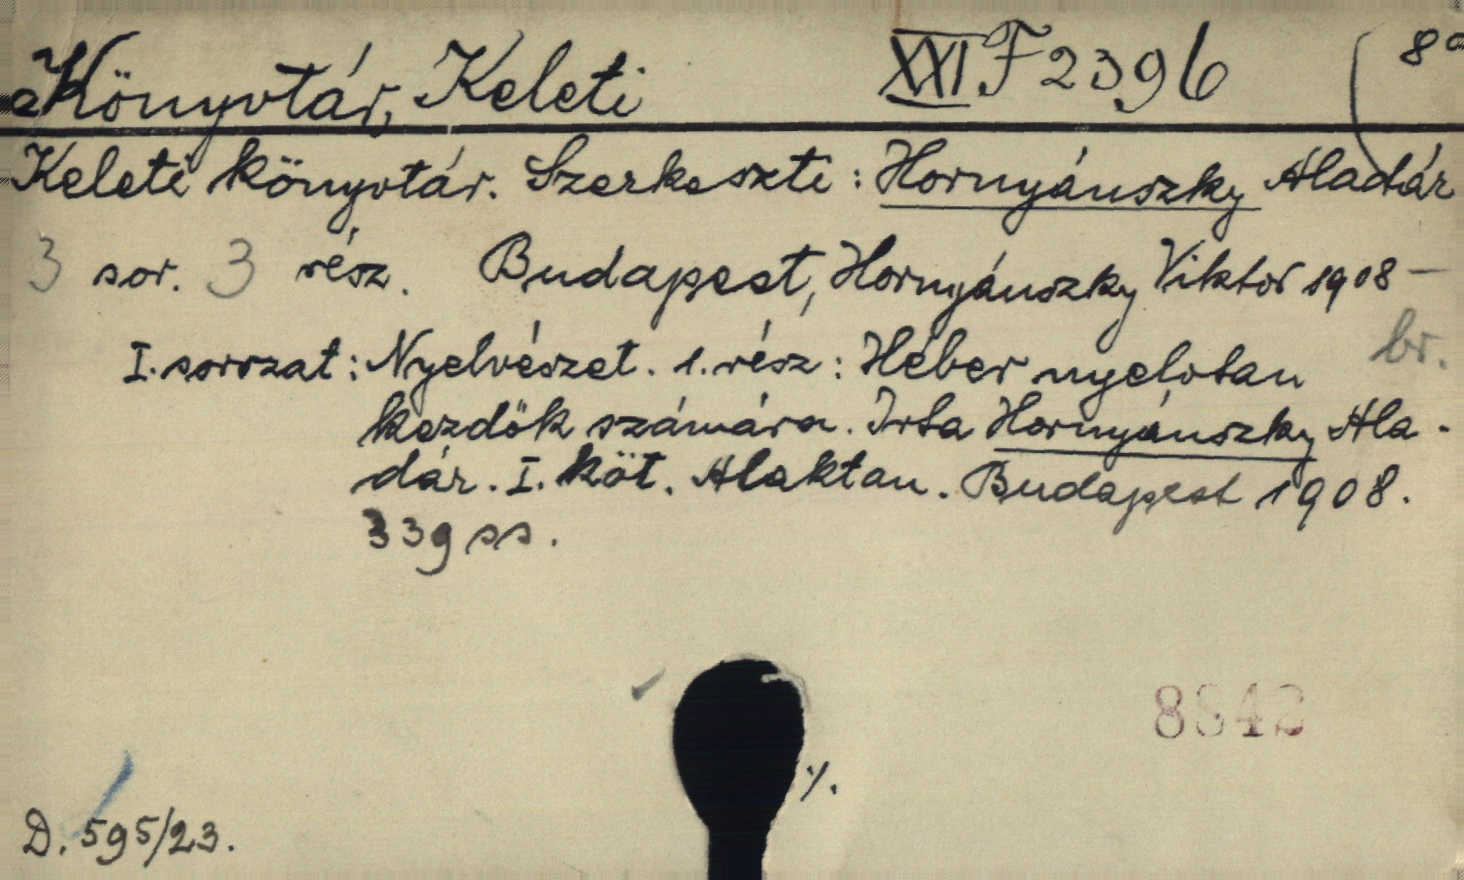 Könyvtár, Keleti XXI F 2396 8°
Keleti könyvtár. Szerkeszti: Hornyánszky Aladár
3 sor. 3 rész. Budapest, Hornyánszky Viktor 1908 —
br.
I. sorozat: Nyelvészet. 1. rész: Héber nyelvtan
kezdők számára. Irta Hornyánszky Ala-
dár. I. köt. Alaktan. Budapest 1908.
339 ss.
8842
./.
D. 595/23.